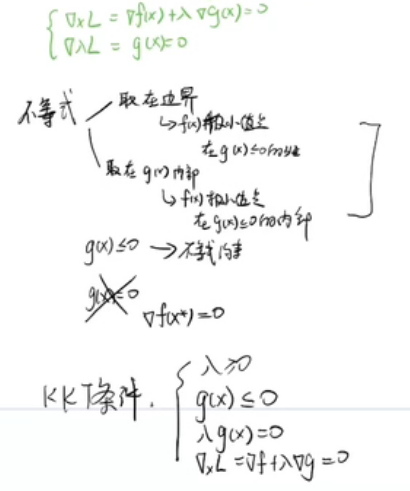 ∇ₓL = ∇f(x)+λ∇g(x)=0
∇λL = g(x)=0
不等式
取在边界
↳ f(x)极小值点
在g(x)≤0
取在g(x)内部
↳ f(x)极小值点
在g(x)≤0的内部
g(x)≤0 → 不等式约束
g(x)≤0
∇f(x*)=0
KKT条件.
λ≥0
g(x)≤0
λg(x)=0
∇ₓL=∇f+λ∇g=0